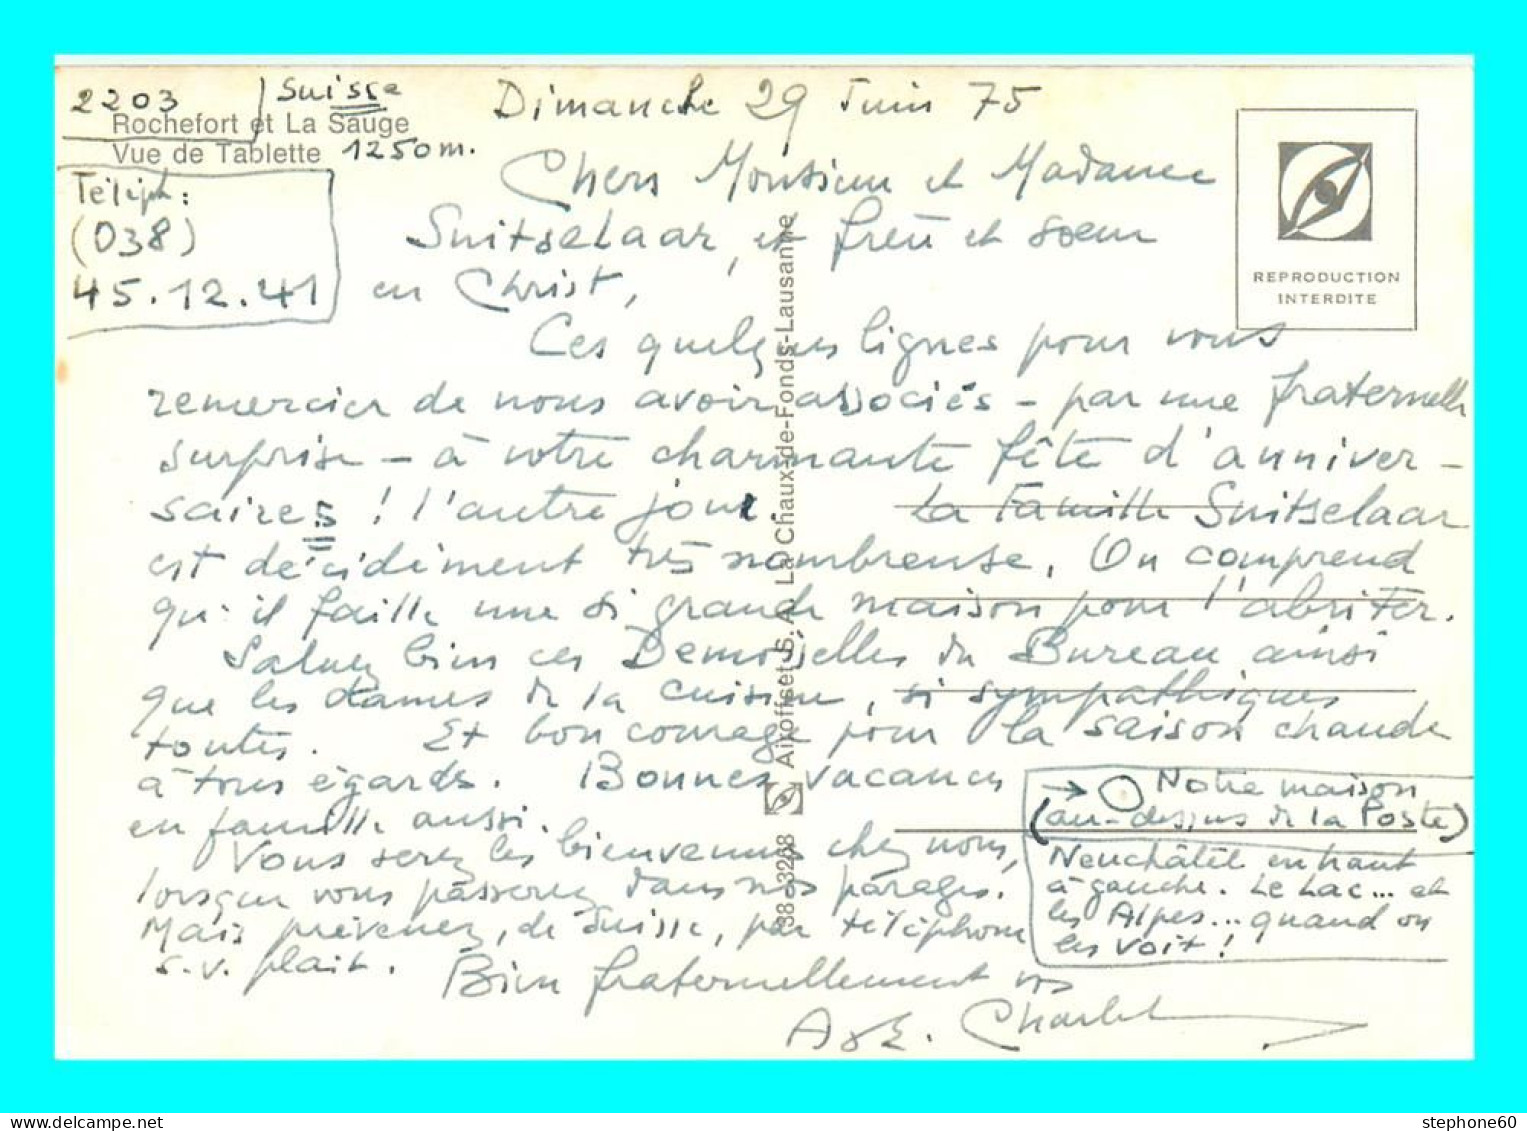 2203 Suisse
Rochefort et La Sauge
Vue de Tablette 1250m.
Téléph:
(038)
45.12.41
Dimanche 29 Juin 75
Chers Monsieur et Madame
Snitselaar, et frère et sœur
en Christ,
Ces quelques lignes pour vous
remercier de nous avoir associés - par une fraternelle
surprise - à votre charmante fête d'anniver-
saires ! l'autre jour. La Famille Snitselaar
est décidément très nombreuse. On comprend
qu'il faille une si grande maison pour l'abriter.
Saluez bien ces Demoiselles du Bureau ainsi
que les dames de la cuisine, si sympathiques
toutes. Et bon courage pour la saison chaude
à tous égards. Bonnes vacances
en famille aussi.
Vous serez les bienvenus chez nous,
lorsque vous passerez dans nos parages.
Mais prévenez, de Suisse, par téléphone
s.v. plait. Bien fraternellement vos
A & E. Charlet
→ O Notre maison
(au-dessus de la Poste)
Neuchâtel en haut
à gauche. Le Lac... et
les Alpes... quand on
les voit !
REPRODUCTION
INTERDITE
38-3268 Airoffset S.A. La Chaux-de-Fonds-Lausanne
stephone60